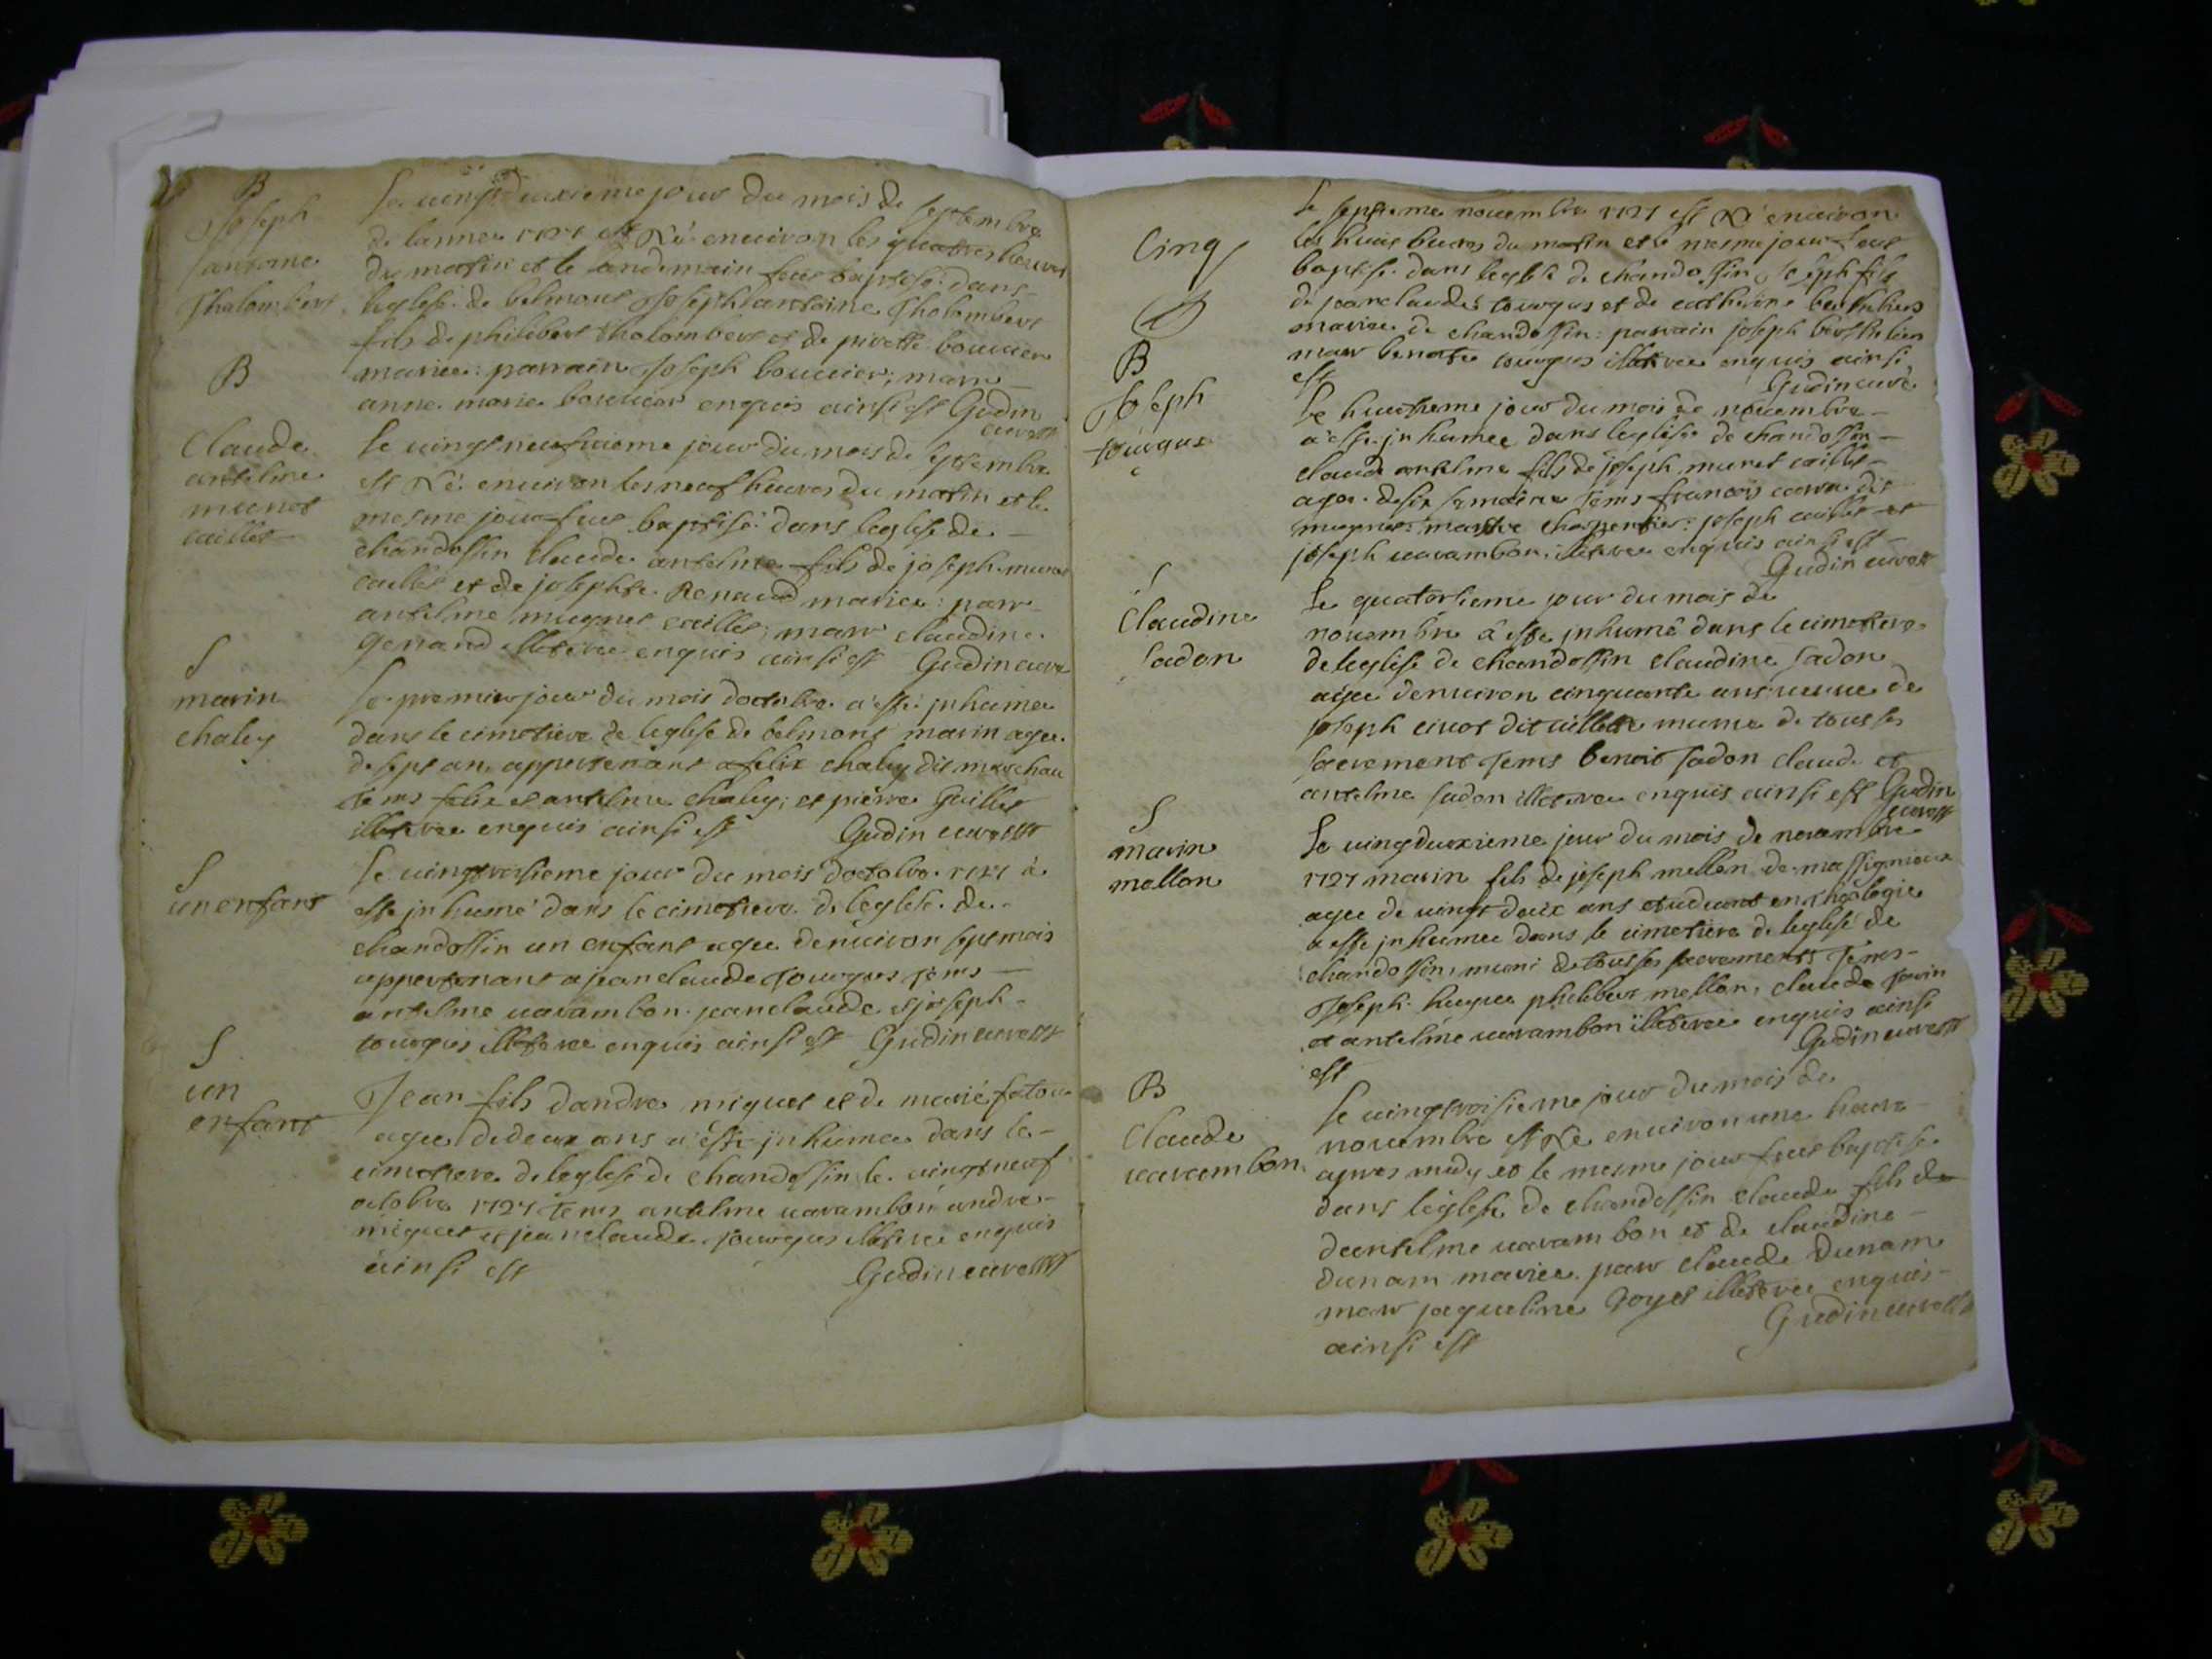 B
Joseph
antoine
Thalombert
Le vingtduxieme jour du mois de septembre
de lannee 1727 est Né environ les quatres heures
du matin et le landemain feut baptisé dans
leglise de belmont Joseph antoine Tholombert
fils de philibert thalombert et de pivette bouvier
mariee: parrain Joseph bouvier; marr
anne marie bouvier enquis ainsi est Gudin
curé
B
Claude
antelme
munet
caillet
Le vingt neufvieme jour du mois de septembre
est Né environ les neuf heures du matin et le
mesme jour feut baptisé dans leglise de
chandossin Claude antelme fils de joseph munet
caillet et de josephte Renaud mariee: parr
antelme mugnet caillet; marr claudine
genand illeteree enquis ainsi est Gudin curé
S
marin
chaley
Le premier jour du mois doctobre a esté inhumee
dans le cimetiere de leglise de belmont marin agee
de sept an, appartenant a felix chaley dit marchau
tems felix et antelme chaley; et pierre Guillet
illeteree enquis ainsi est Gudin curé
S
un enfant
Le vingtroisieme jour du mois doctobre 1727 à
este inhumé dans le cimetiere de leglise de
chandossin un enfant agee denviron sept mois
appartenant a jean claude tourgus tems
antelme varambon jean claude et joseph
tourgus illeteree enquis ainsi est Gudin curé
S
un
enfant
Jean fils dandre miguet et de marie
agee de deux ans a esté inhumee dans le
cimetiere de leglise de chandossin le vingt neuf
octobre 1727 tems antelme varambon andre
miguet et jean claude tourgus illeteree enquis
ainsi est Gudin curé
Cinq
B
Joseph
tourgus
Le septieme novembre 1727 est Né environ
les huit heures du matin et le mesme jour feut
baptisé dans leglise de chandossin Joseph fils
de jean claude tourgus et de catherine berthelier
mariee de chandossin: parrain joseph berthelier
marr benoite tourgus illeteree enquis ainsi
est Gudin curé
Le huictieme jour du mois de novembre
a esté inhumee dans leglise de chandossin
claude antelme fils de joseph munet caillet
agee de six semaine tems francois dit
mugnet maitre charpentier: joseph caillet et
joseph varambon illeteree enquis ainsi est
Gudin curé
S
Claudine
sadon
Le quatorsieme jour du mois de
novembre à esté inhumé dans le cimetiere
de leglise de chandossin claudine sadon
agee denviron cinquante ans veuve de
joseph dit munie de tous ses
sacrement tems benoit sadon claude et
antelme sadon illeteree enquis ainsi est Gudin
curé
S
marin
mellon
Le vingduxieme jour du mois de novembre
1727 marin fils de joseph mellon de massignieux
agee de vingt deux ans etudiant en theologie
a esté inhumee dans le cimetiere de leglise de
chandossin, muni de tous ses sacrements tems
Joseph hugue philibert mellon, claude
et antelme varambon illeteree enquis ainsi
est Gudin curé
B
Claude
varambon
Le vingtroisieme jour du mois de
novembre est Né environ une heure
apres midy et le mesme jour feut baptisé
dans léglise de chandossin claude fils de
dantelme varambon et de claudine
dunam mariee parr claude dunam
marr jaqueline Goyet illeteree enquis
ainsi est Gudin curé